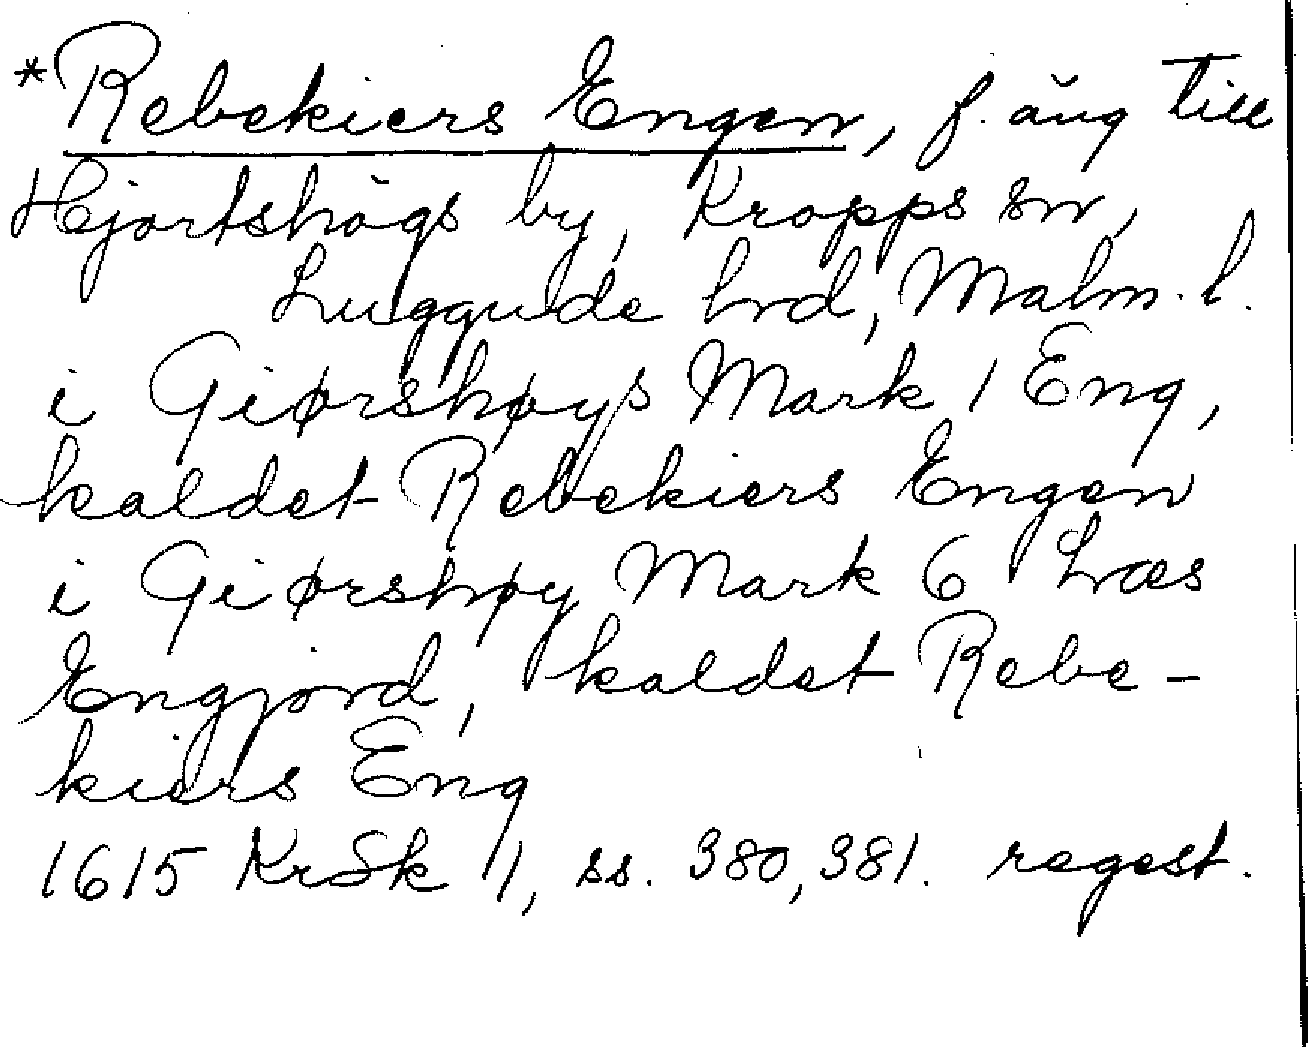 *Rebekiers Engen, f. äng till
Hjortshögs by, Kropps sn,
Luggude hrd, Malm. l.
i Giørshøys Mark 1 Eng,
kaldet Rebekiers Engen
i Giørshøy Mark 6 Læs
Engjord, kaldet Rebe-
kiers Eng
1615 KrSk 1, ss. 380, 381. regest.